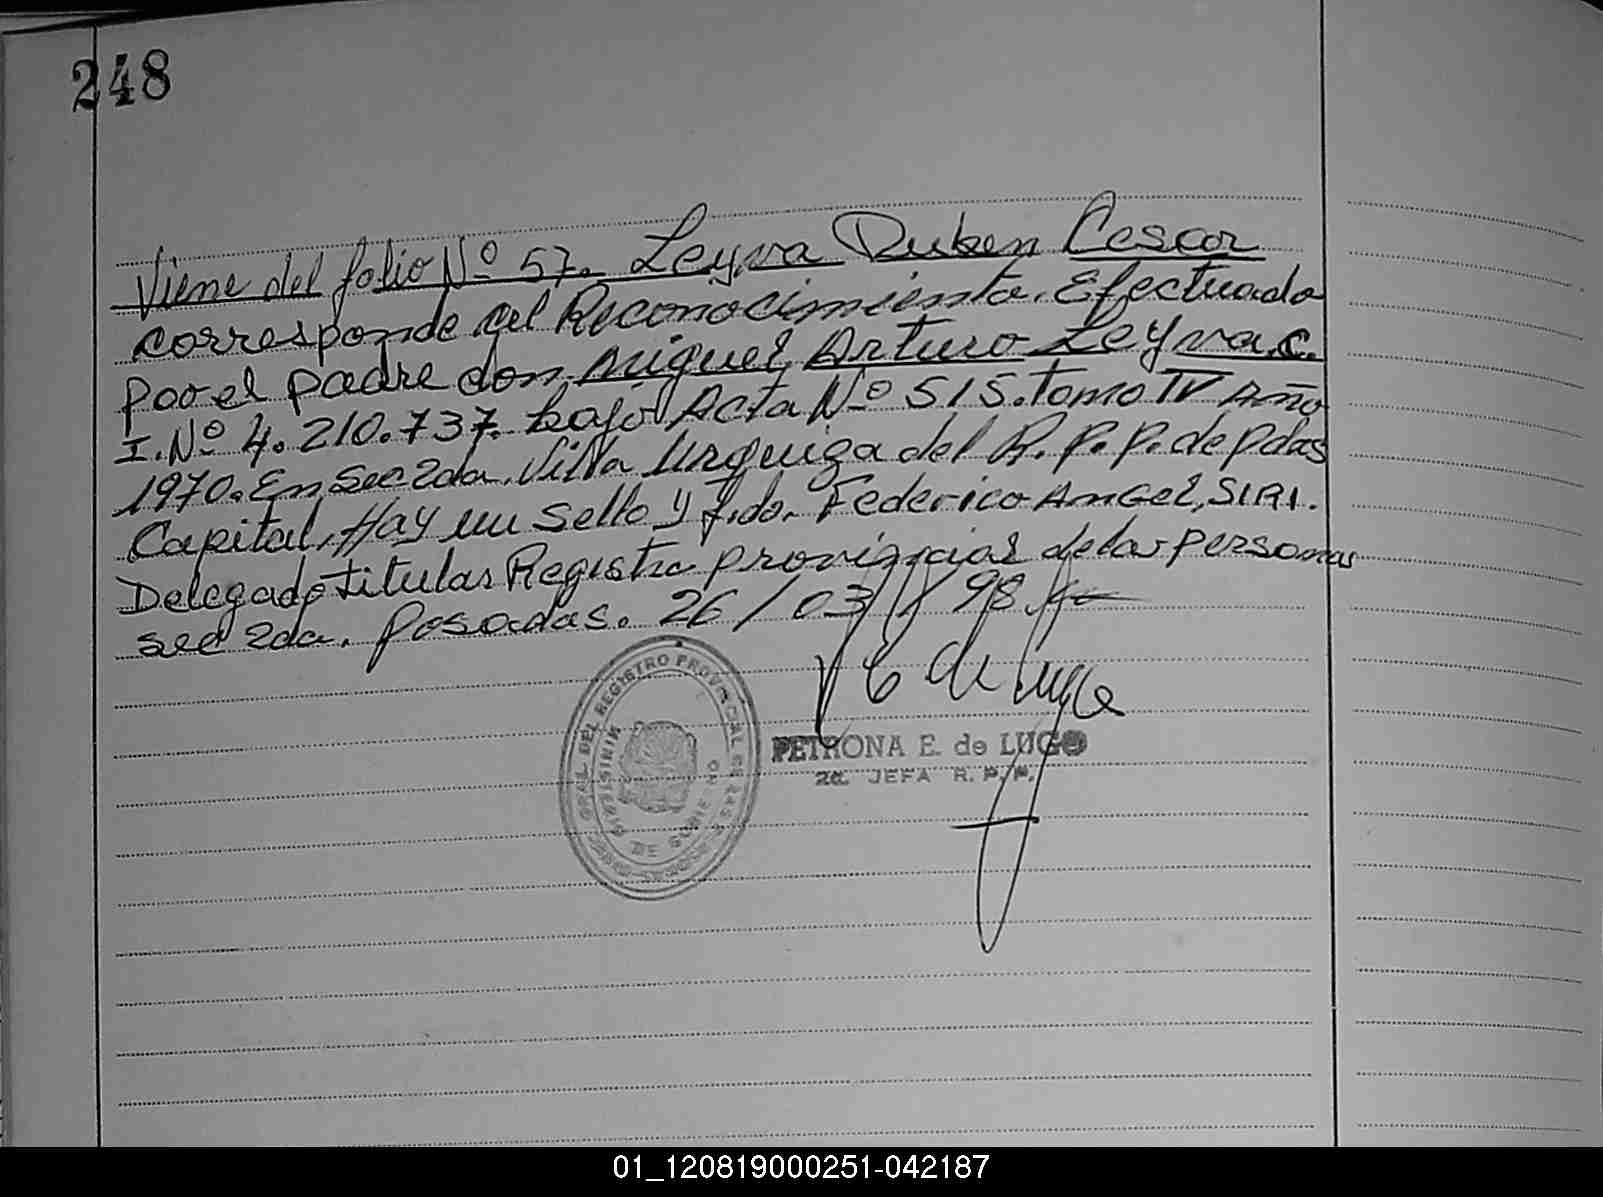 248
Viene del folio Nº 57. Leyva Ruben Cesar
corresponde al Reconocimiento. Efectuado
por el padre don, Miguel, Arturo Leyva, C.
I. Nº 4.210.737. bajo Acta Nº 515. tomo IV Año
1970. En Sec 2da. Villa Urquiza del R. P. P. de Pdas
Capital, Hay un sello y fdo. Federico Angel, SIRI.
Delegado titular Registro provincial de las personas
sec 2da. Posadas. 26/03/98
PETRONA E. de LUGO
2a. JEFA R. P. P.
GRAL. DEL REGISTRO PROVINCIAL DE LAS
MINISTERIO DE GOBIERNO
01_120819000251-042187